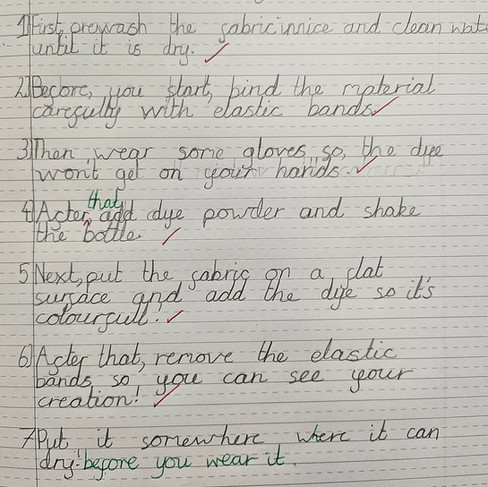 1) First, prewash the fabric in nice and clean wate
until it is dry.
2) Before, you start, bind the material
carefully with elastic bands
3) Then, wear some gloves, so, the dye
won't get on your hands.
4) After that, add dye powder and shake
the bottle.
5) Next, put the fabric on a flat
surface and add the dye so it's
colourfull!
6) After that, remove the elastic
bands, so you can see your
creation!
7) Put it somewhere, where it can
dry before you wear it.